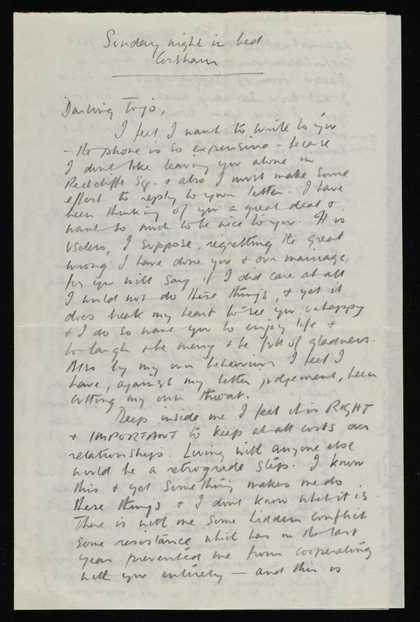 Sunday night in bed
Corsham
Darling Jojo,
I feel I want to write to you
– the phone is so expensive – because
I don't like leaving you alone in
Redcliffe Sq. & also I must make some
effort to reply to your letter. I have
been thinking of you a great deal &
want so much to be nice to you. It is
useless, I suppose, regretting the great
wrong I have done you & our marriage,
for you will say if I did care at all
I would not do these things, & yet it
does break my heart to see you unhappy
& I do so want you to enjoy life &
to laugh & be merry & be full of gladness.
Also by my own behaviour I feel I
have, against my better judgement, been
cutting my own throat.
Deep inside me I feel it is RIGHT
& IMPORTANT to keep at all costs our
relationship. Living with anyone else
would be a retrograde step. I know
this & yet something makes me do
these things & I don't know what it is.
There is with me some hidden conflict
some resistance which has in the last
year prevented me from cooperating
with you entirely — and this is